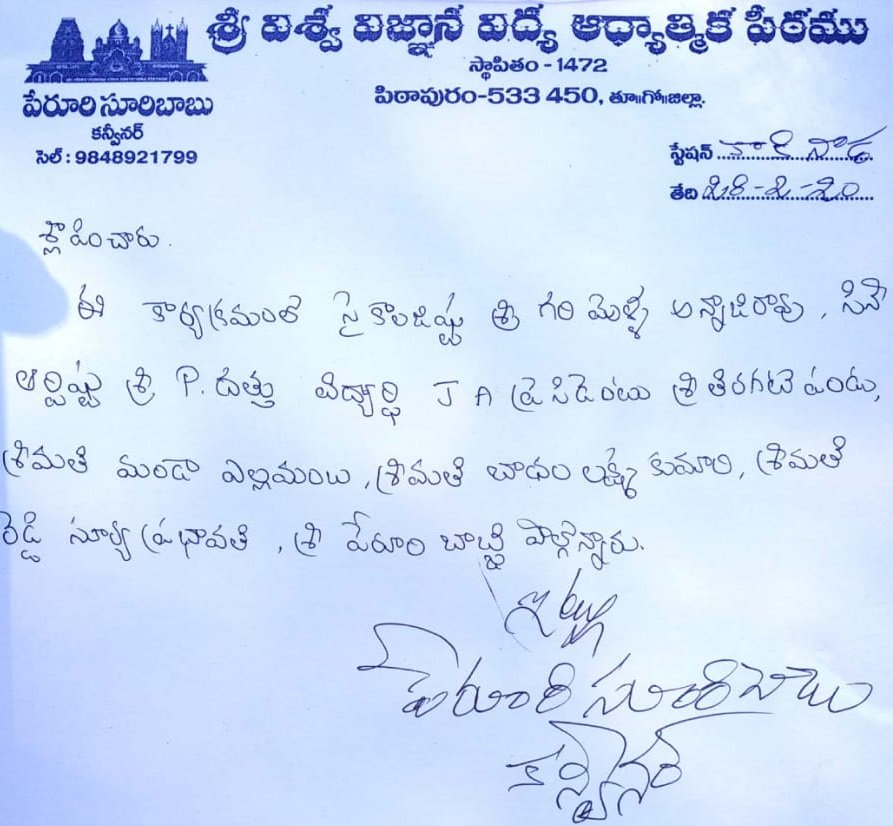 శ్రీ విశ్వ విజ్ఞాన విద్య ఆధ్యాత్మిక పీఠము
స్థాపితం - 1472
పిఠాపురం-533 450, తూ॥గో॥జిల్లా.
పేరూరి సూరిబాబు
కన్వీనర్
సెల్ : 9848921799
స్టేషన్ కాకినాడ
తేది 28-2-20
శ్లాపించారు.
ఈ కార్యక్రమంలో సైకాలజిష్టు శ్రీ గరిమెళ్ళ అన్నాజిరావు, సినీ
ఆర్టిష్టు శ్రీ P. దుత్తు విద్యార్ధి J A ప్రెసిడెంటు శ్రీ తిరగటి పండు,
శ్రీమతి ముండా ఎల్లమంబ, శ్రీమతి బాధం లక్ష్మి కుమారి, శ్రీమతి
రెడ్డి సూర్య ప్రభావతి, శ్రీ పేరూరి బాబ్జి పాల్గొన్నారు.
ఇట్లు
పేరూరి సూరిబాబు
కన్వీనర్